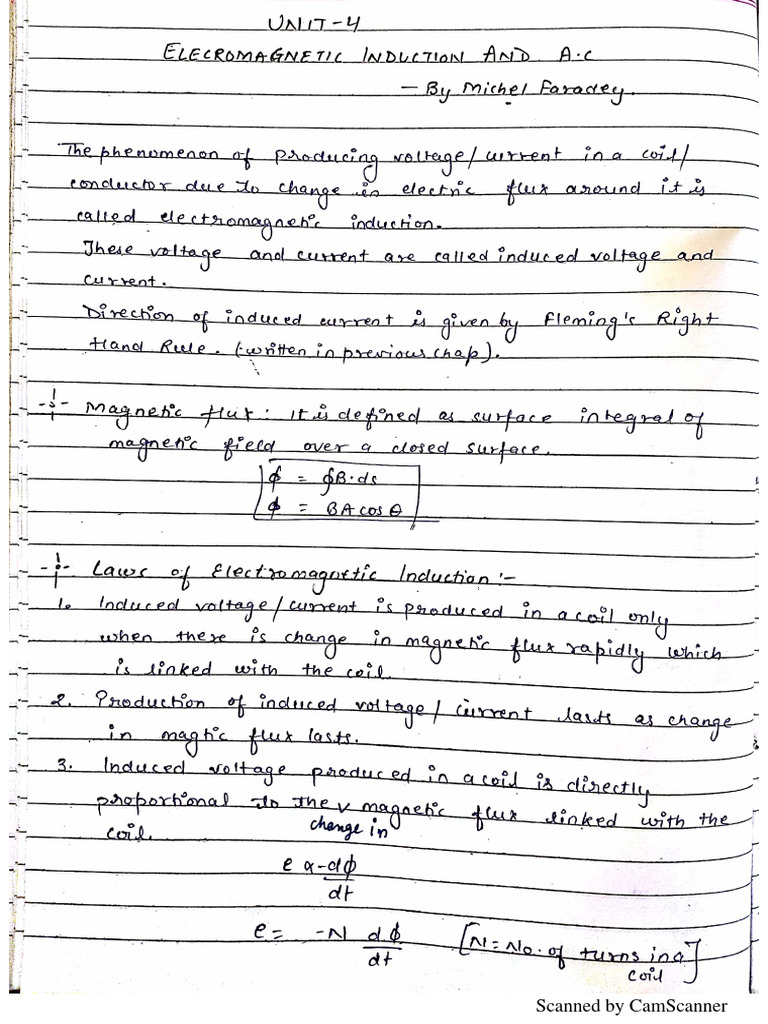 UNIT-4
ELECROMAGNETIC INDUCTION AND A.C
- By Michel Faradey.
The phenomenon of producing voltage/current in a coil/
conductor due to change in electric flux around it is
called electromagnetic induction.
These voltage and current are called induced voltage and
current.
Direction of induced current is given by Fleming's Right
Hand Rule. (written in previous chap).
Magnetic flux: It is defined as surface integral of
magnetic field over a closed surface.
ϕ = ∮B.ds
ϕ = BA cos θ
Laws of Electromagnetic Induction :-
1. Induced voltage/current is produced in a coil only
when there is change in magnetic flux rapidly which
is linked with the coil.
2. Production of induced voltage/current lasts as change
in magtic flux lasts.
3. Induced voltage produced in a coil is directly
proportional to the v magnetic flux linked with the
coil. change in
e α -dϕ
dt
e = -N dϕ [N = No. of turns in a
dt coil]
Scanned by CamScanner